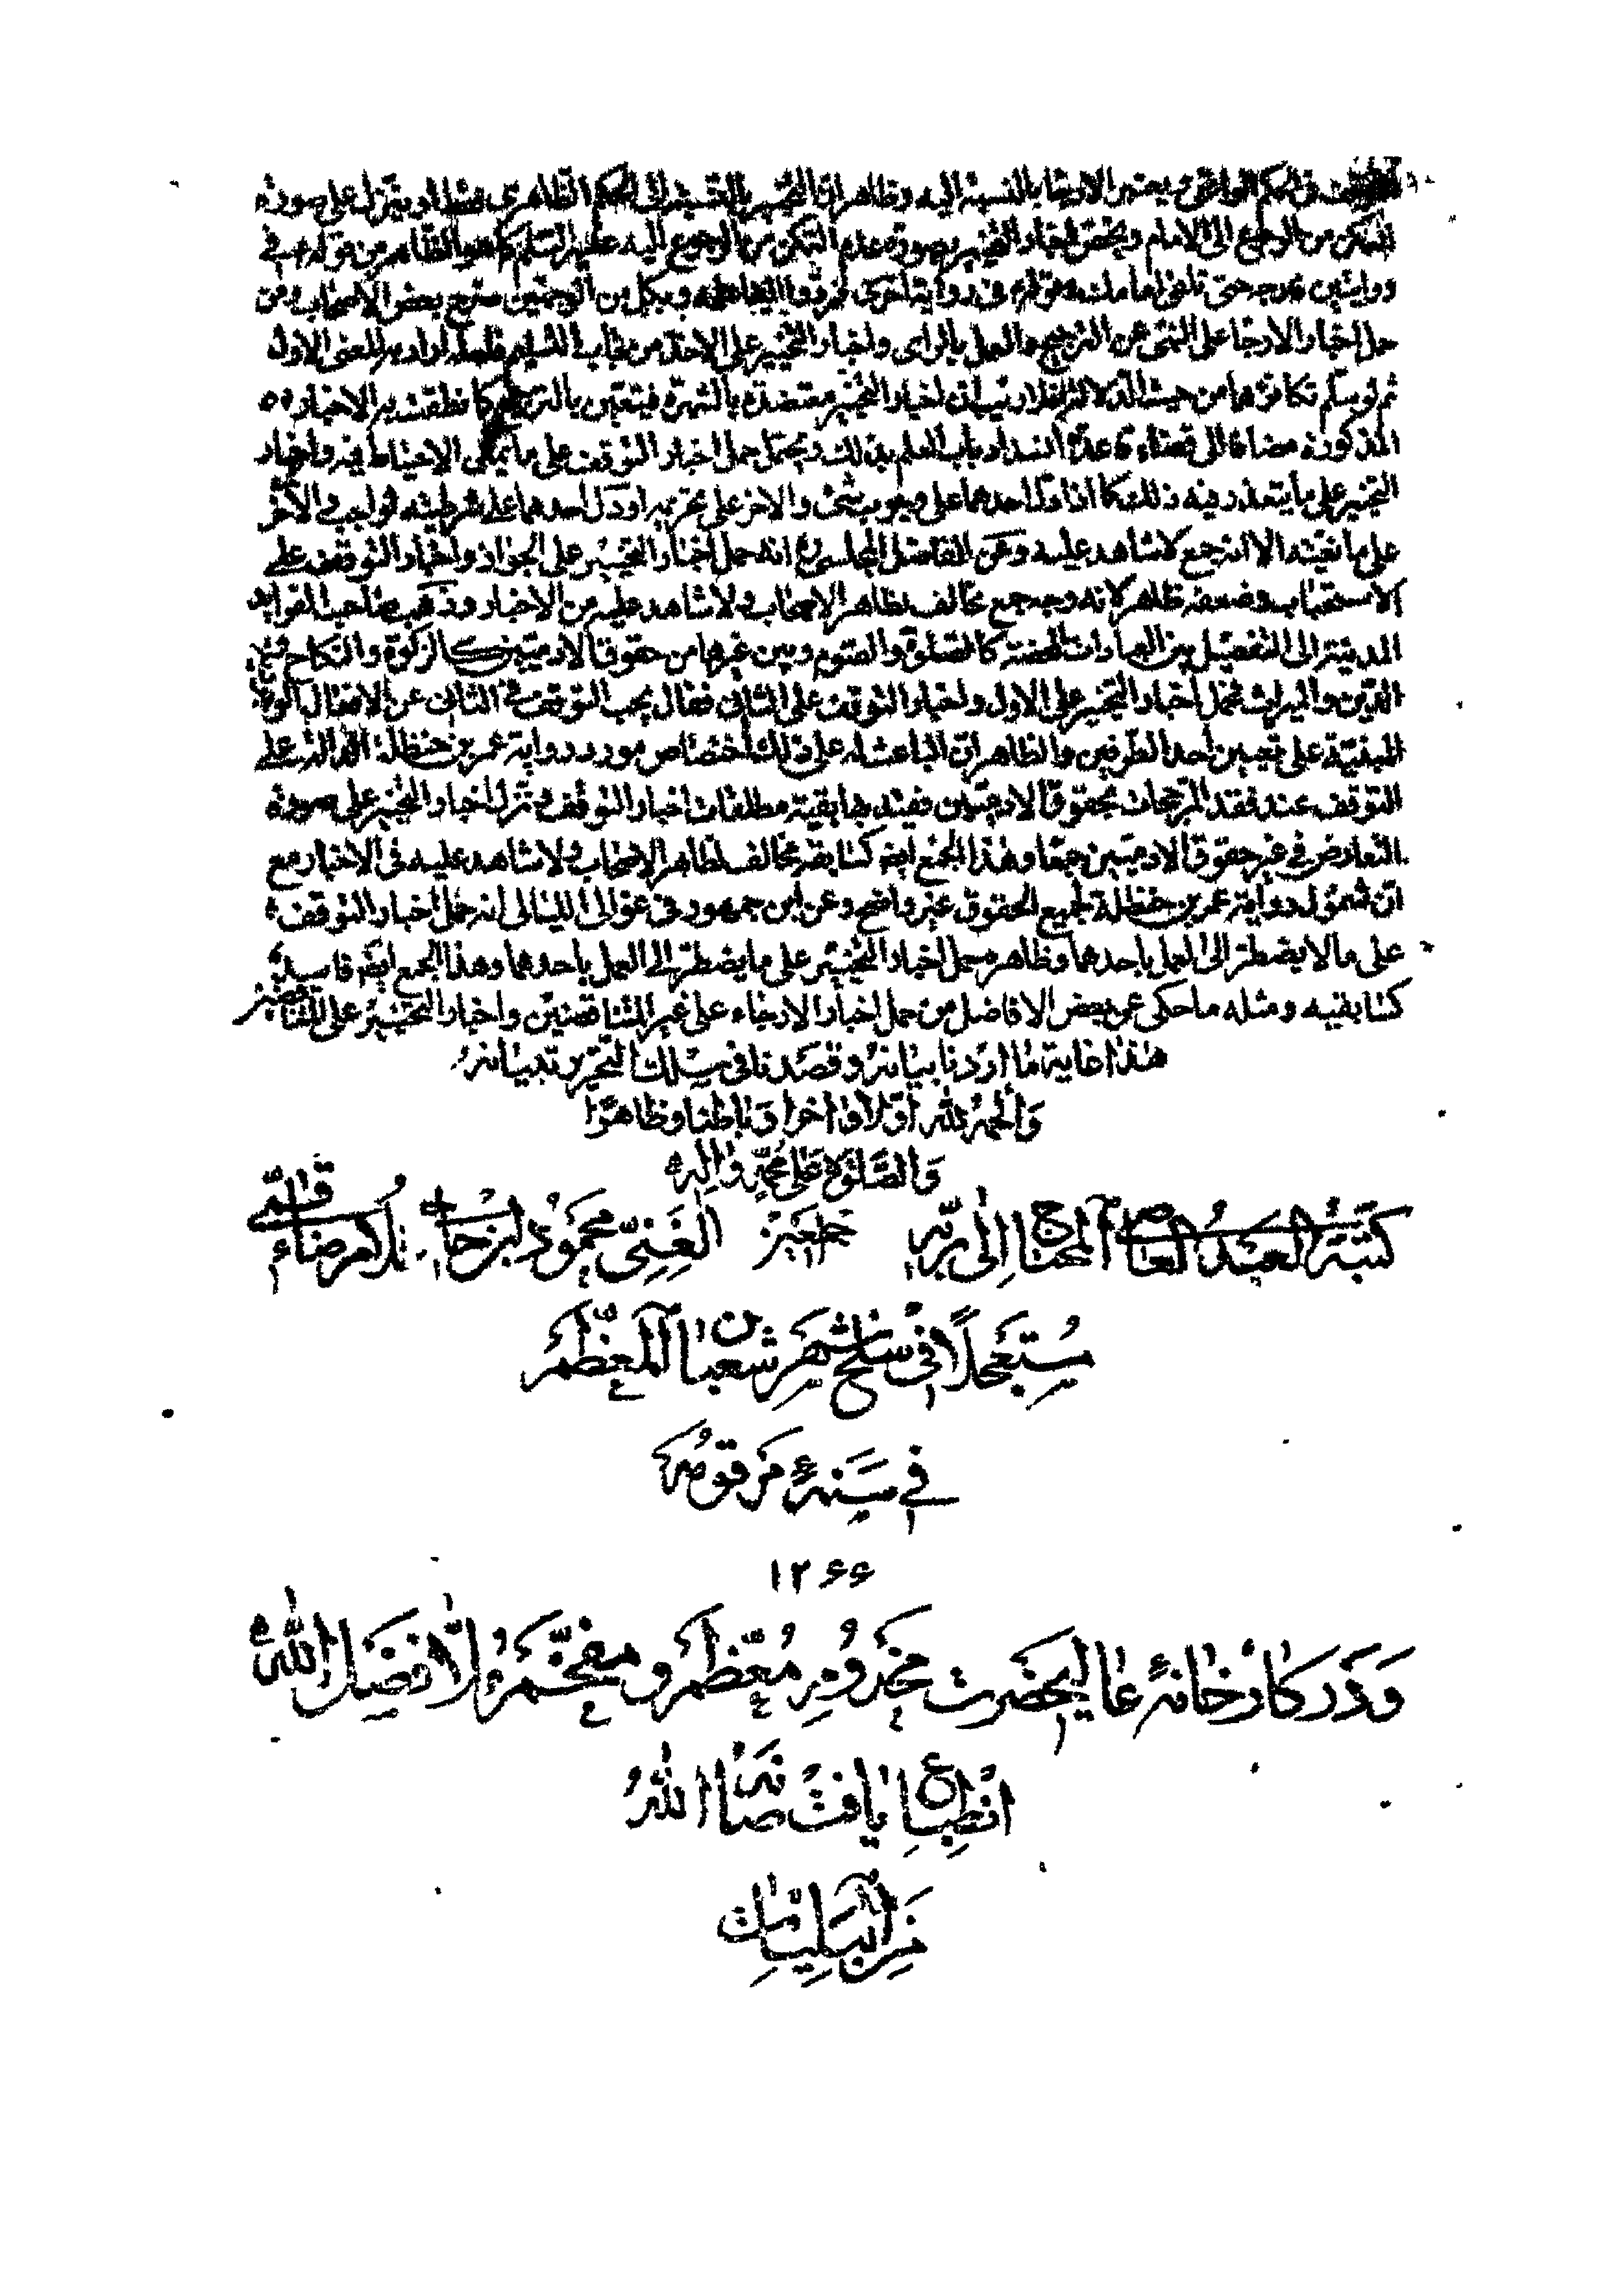 في الحكم الواقعي بمعنى الارجاء بالنسبة اليه وظاهر ان التخيير بالنسبة الى الحكم الظاهري فتنزل على صورة
التمكن من الرجوع الى الامام ويختص اخبار التخيير بصورة عدم التمكن من الرجوع اليه عليه السلم كما هو الظاهر من قوله ع في
روايتين يرجه حتى تلقى امامك وقوله ع في رواية اخرى وبكل من الوجهين صرح بعض الاصحاب ومن
حمل اخبار الارجاء على النهى عن الترجيح والعمل بالراى واخبار التخيير على الاخذ من باب التسليم فلعله اراد به المعنى الاول
ثم لو سلم تكافؤهما من حيث الدلالة فلا ريب ان اخبار التخيير معتضدة بالشهرة فيتعين بالترجيح كما نطقت به الاخبار
المذكورة مضافا الى قضاء قاعدة انسداد باب العلم بذلك ويحتمل حمل اخبار التوقف على ما يمكن الاحتياط فيه واخبار
التخيير على ما يتعذر فيه ذلك كما اذا دل احدهما على وجوب شئ والاخر على تحريمه او دل احدهما على شرطيته لواجب والاخر
على مانعيته الا انه جمع لا شاهد عليه وعن الفاضل المجلسي ره انه حمل اخبار التخيير على الجواز واخبار التوقف على
الاستحباب وضعفه ظاهر لانه وجه جمع مخالف لظاهر الاصحاب ولا شاهد عليه من الاخبار وذهب صاحب الفوايد
المدنية الى التفصيل بين العبادات المحضة كالصلوة والصوم وبين غيرها من حقوق الادميين كالزكوة والنكاح
الدين والميراث فحمل اخبار التخيير على الاول واخبار التوقف على الثاني فقال يجب التوقف في الثاني عن الافعال
المبنية على تعيين احد الطرفين والظاهر ان الباعث له على ذلك اختصاص مورد رواية عمر بن حنظلة الدالة على
التوقف عند فقد المرجحات بحقوق الادميين فقيد بها بقية مطلقات اخبار التوقف ونزل اخبار التخيير على صورة
التعارض في غير حقوق الادميين جمعا وهذا الجمع ايضا كسابقه مخالف لظاهر الاصحاب ولا شاهد عليه في الاخبار مع
ان شمول رواية عمر بن حنظلة لجميع الحقوق غير واضح وعن ابن جمهور في غوالى اللئالى انه حمل اخبار التوقف
على ما لا يضطر الى العمل باحدهما وظاهره حمل اخبار التخيير على ما يضطر الى العمل باحدهما وهذا الجمع ايضا فاسد
كسابقيه ومثله ما حكى عن بعض الافاضل من حمل اخبار الارجاء على غير المتناقضين واخبار التخيير على المتناقضين
هذا غاية ما اردنا بيانه وقصدنا في سلك التحرير تبيانه
والحمد لله اولا واخرا وباطنا وظاهرا
والصلوة على محمد واله
كتبه العبد العاصي المحتاج الى ربه الغني محمود ابن خان غلامرضا قائني
مستعجلا في سلخ شهر شعبان المعظم
في سنة مرقومه
۱۲۶۶
و در كارخانه عاليحضرت مخدوم معظم و مفخم ملا فضل الله
انطباع يافت صانه الله
من البليات